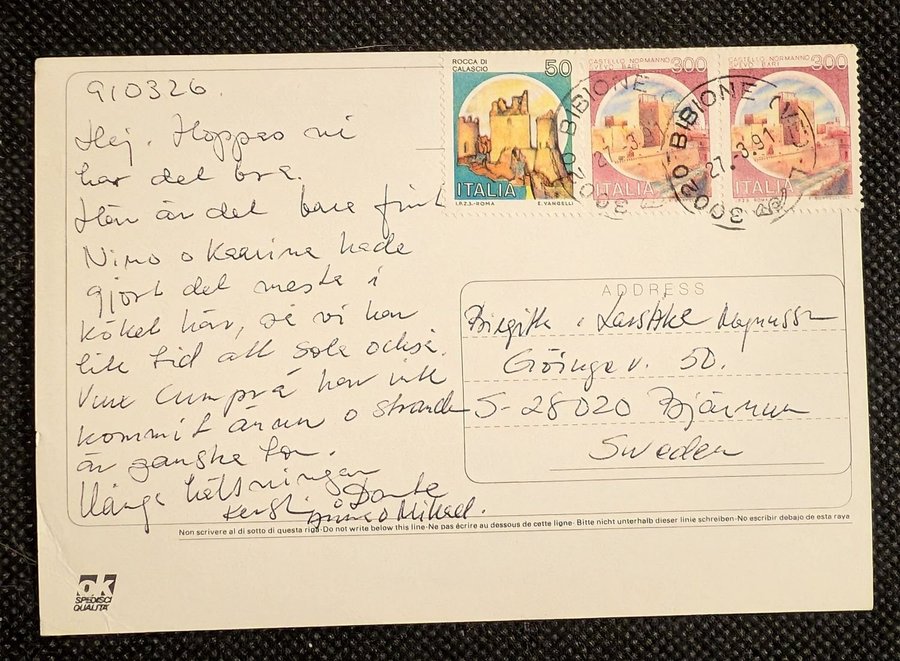 910326.
Hej. Hoppas ni
har det bra.
Här är det bara fint
Nino o Kaarina hade
gjort det mesta i
köket här, så vi har
lite tid att sola också.
Vinx Cumprà har inte
kommit ännu o stranden
är ganska tom.
Många hälsningar
Kerstin Dante
o Mikael.
ROCCA DI
CALASCIO
50
ITALIA
I.P.Z.S.-ROMA E. VANGELLI
CASTELLO NORMANNO
SVEVO BARI
300
ITALIA
CASTELLO NORMANNO
SVEVO BARI
300
ITALIA
30020 BIBIONE
27.-3.91
30020 BIBIONE (VE)
27.-3.91
ADDRESS
Birgitta o LarsÅke Magnusson
Göingev. 50.
S-28020 Bjärnum
Sweden
Non scrivere al di sotto di questa riga-Do not write below this line-Ne pas écrire au dessous de cette ligne-Bitte nicht unterhalb dieser linie schreiben-No escribir debajo de esta raya
ok
SPEDISCI
QUALITÀ